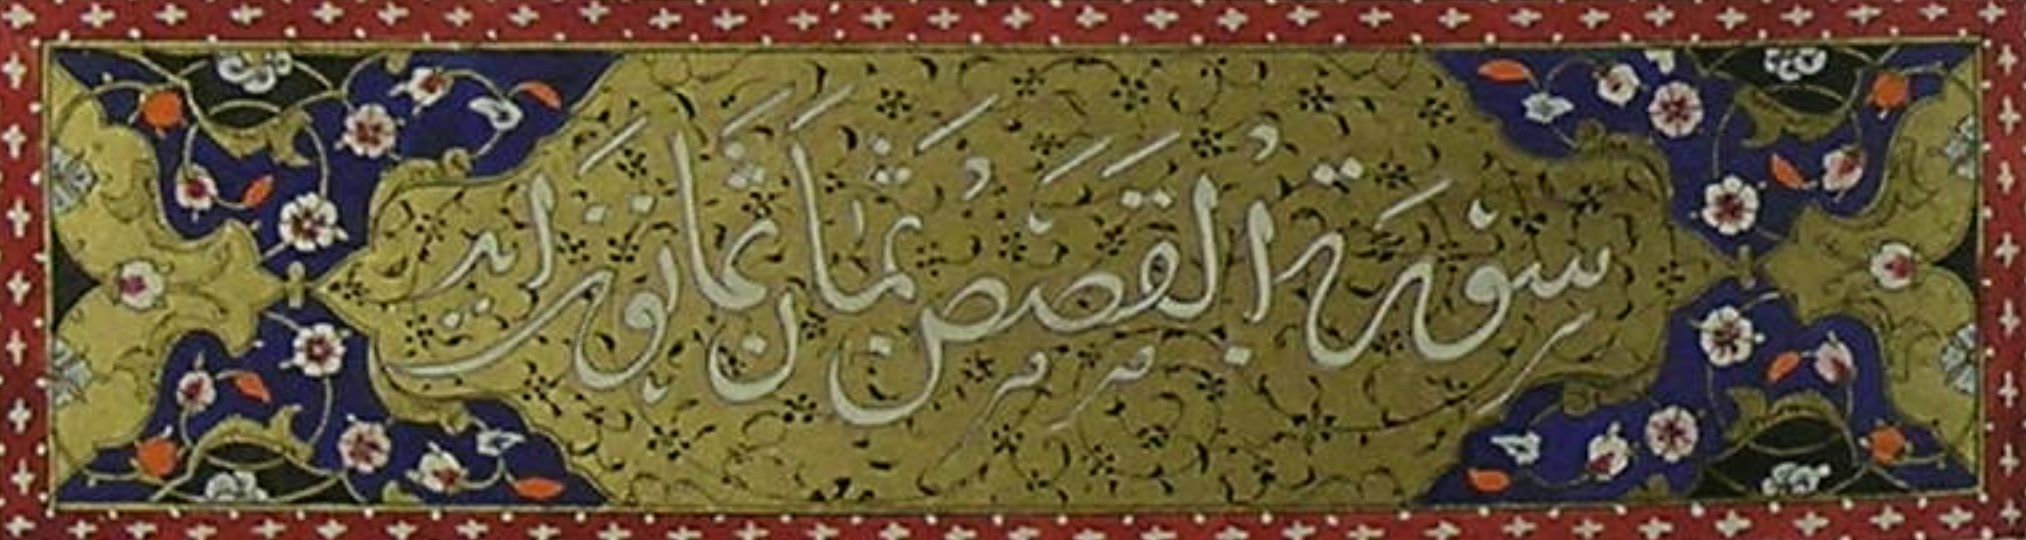 سُورَةُ الْقَصَصُ ثَمَانَ ثَمَانُونَ اٰيَةً